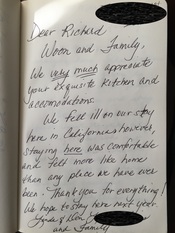 Dear Richard
Woon and Family,
We very much appreciate
your exquisite kitchen and
accomodations.
We fell ill on our stay
here in California however,
staying here was comfortable
and felt more like home
than any place we have ever
been. Thank you for everything!
We hope to stay here next year.
and Family